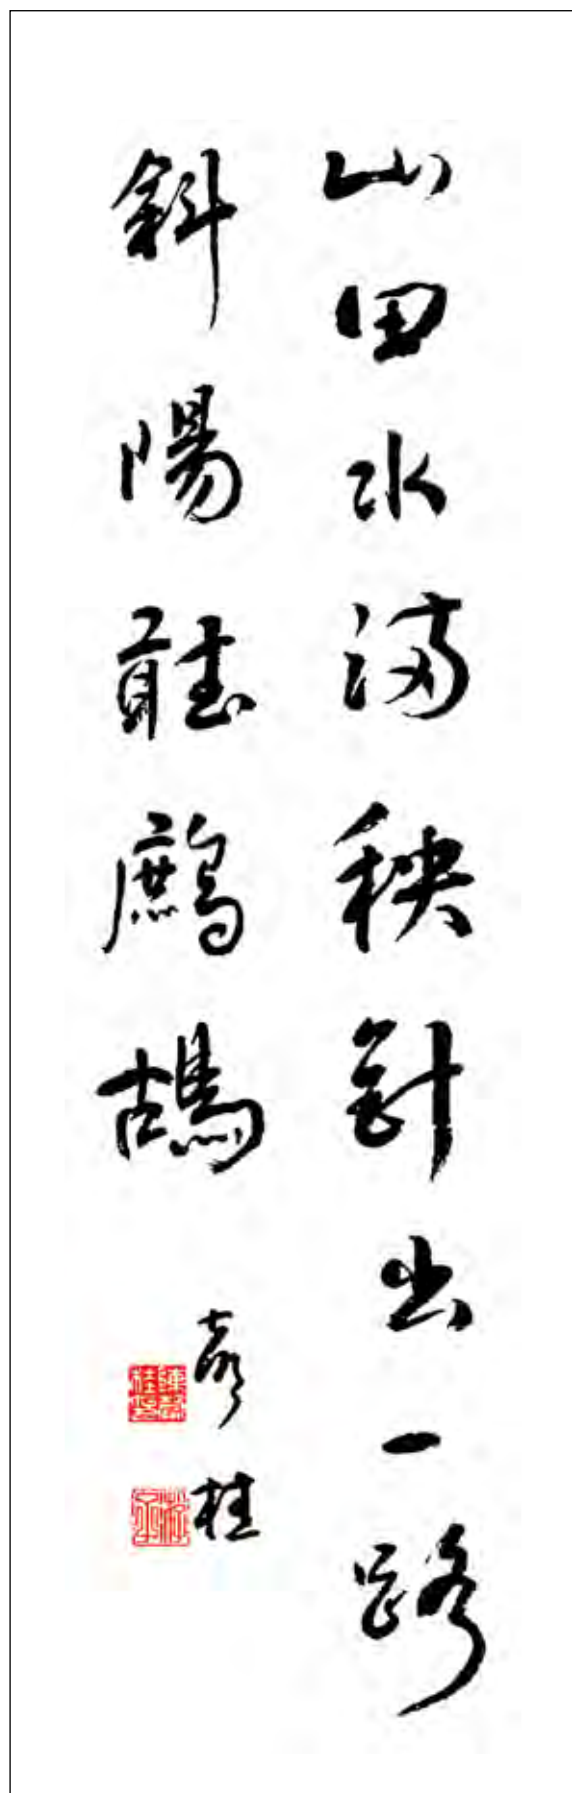 山田水满秧針出一路
斜陽聽鷓鴣
彥桂